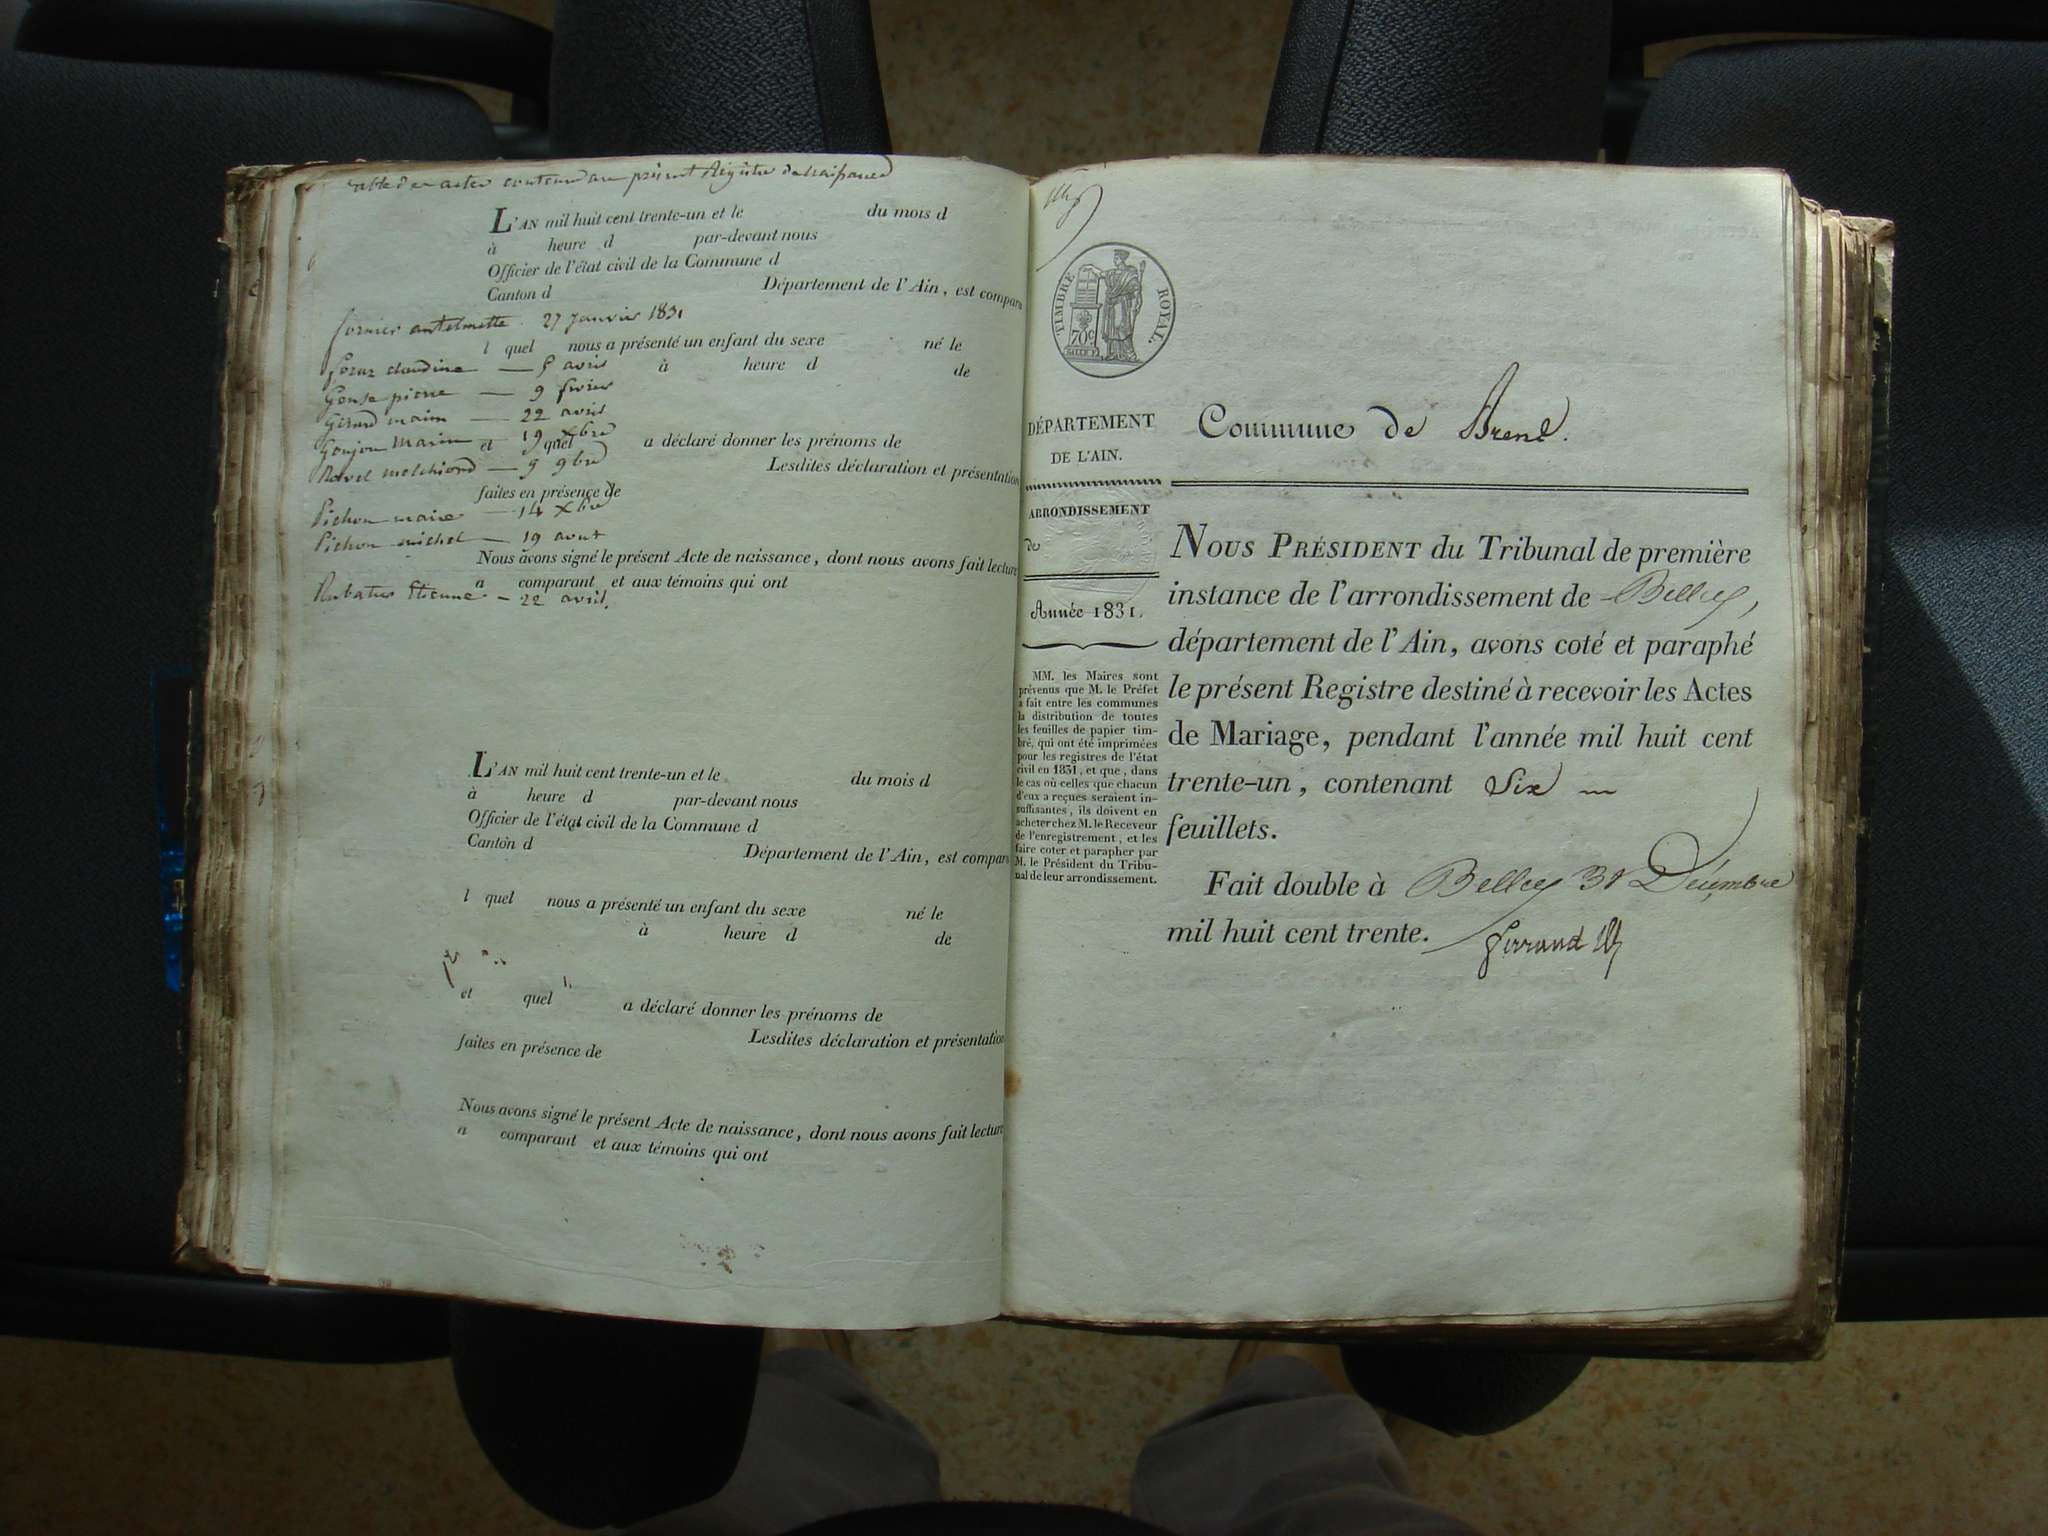 table des actes contenu au présent Régistre de naissance
L'AN mil huit cent trente-un et le du mois d
à heure d par-devant nous
Officier de l'état civil de la Commune d
Canton d Département de l'Ain, est comparu
fornier antelmette. 27 Janvier 1831
l quel nous a présenté un enfant du sexe né le
claudine — 5 avril à heure d de
pierre — 9 fevrier
Girard — 22 avril
Goujon — 19 Xbre
et quel a déclaré donner les prénoms de
Ravet melchiord — 9 9bre
Lesdites déclaration et présentation
faites en présence de
Pichon marie — 14 Xbre
Pichon michel — 19 aout
Nous avons signé le présent Acte de naissance, dont nous avons fait lecture
a comparant et aux témoins qui ont
Etienne — 22 avril.
L'AN mil huit cent trente-un et le du mois d
à heure d par-devant nous
Officier de l'état civil de la Commune d
Canton d Département de l'Ain, est comparu
l quel nous a présenté un enfant du sexe né le
à heure d de
et quel a déclaré donner les prénoms de
Lesdites déclaration et présentation
faites en présence de
Nous avons signé le présent Acte de naissance, dont nous avons fait lecture
a comparant et aux témoins qui ont
TIMBRE ROYAL.
70c
DÉPARTEMENT
DE L'AIN.
ARRONDISSEMENT
de
Année 1831.
MM. les Maires sont
prévenus que M. le Préfet
a fait entre les communes
la distribution de toutes
les feuilles de papier tim-
bré, qui ont été imprimées
pour les registres de l'état
civil en 1831, et que, dans
le cas où celles que chacun
d'eux a reçues seraient in-
suffisantes, ils doivent en
acheter chez M. le Receveur
de l'enregistrement, et les
faire coter et parapher par
M. le Président du Tribu-
nal de leur arrondissement.
Commune de
NOUS PRÉSIDENT du Tribunal de première
instance de l'arrondissement de Belley,
département de l'Ain, avons coté et paraphé
le présent Registre destiné à recevoir les Actes
de Mariage, pendant l'année mil huit cent
trente-un, contenant Six
feuillets.
Fait double à Belley 31 Décembre
mil huit cent trente. Ferrand